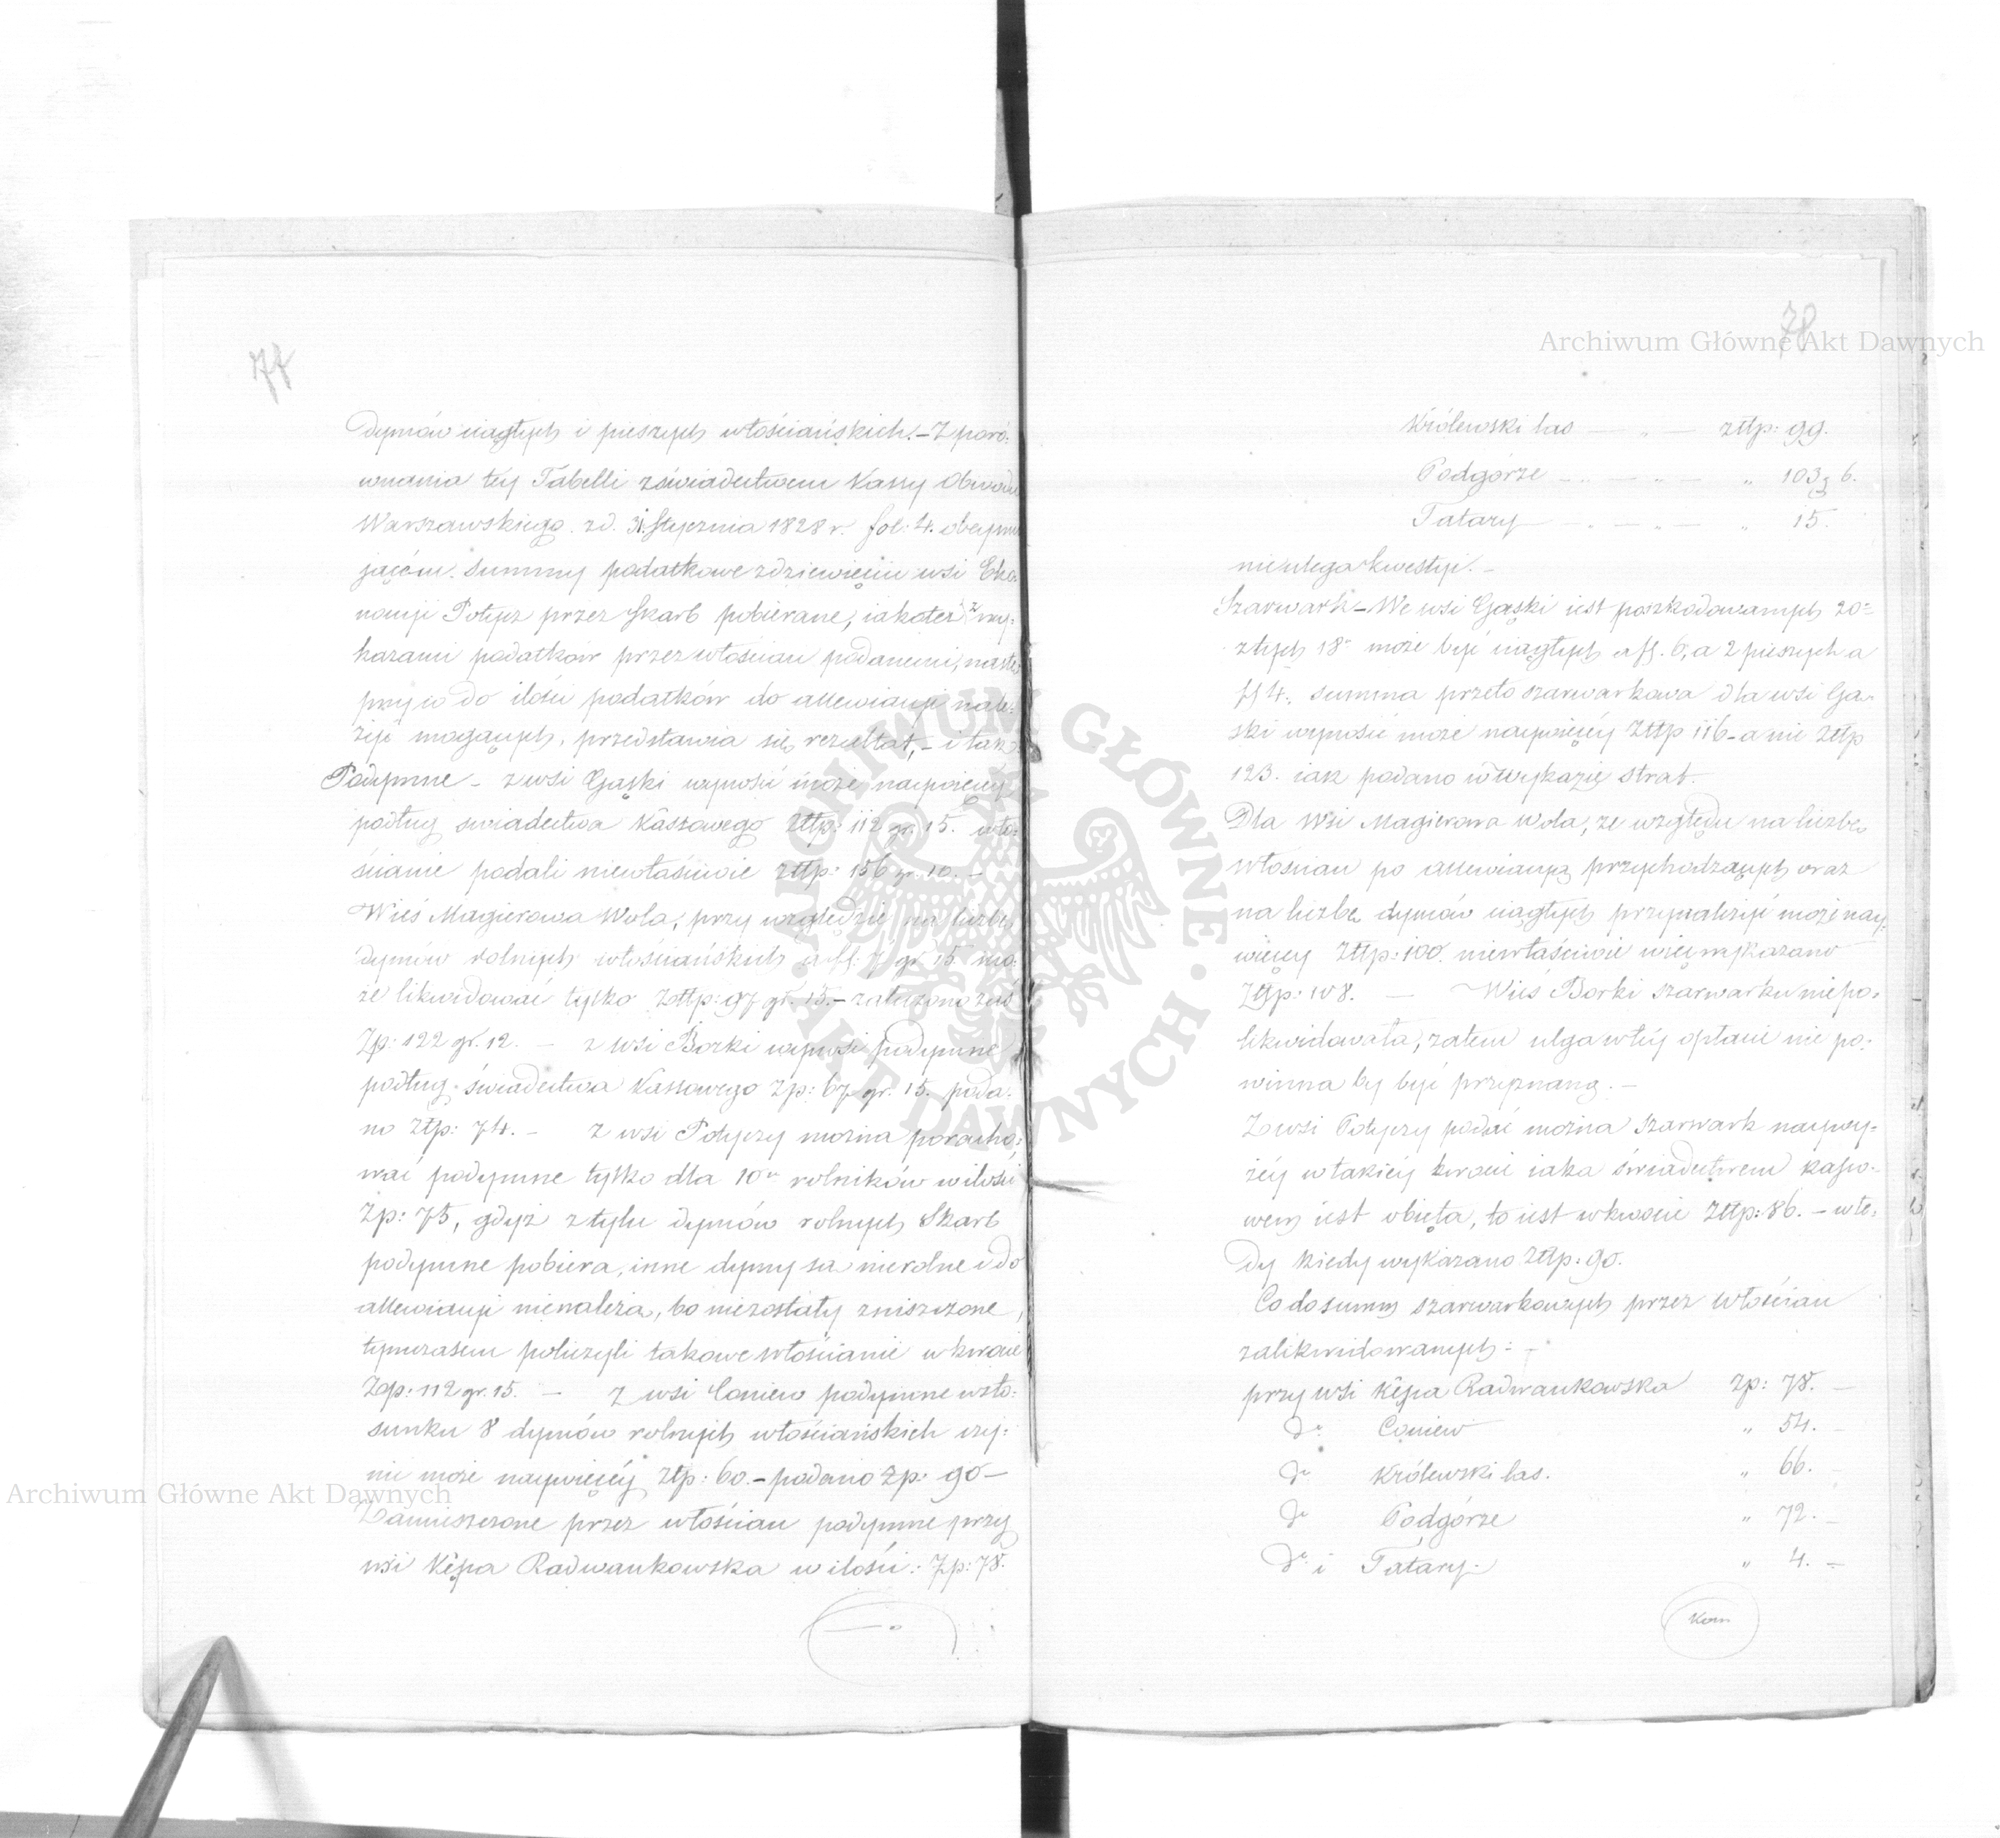 77
dymów ciągłych i pieszych włościańskich. – Z poró:
wnania tey Tabelli z świadectwem Kassy Obwodu
Warszawskiego z d. 31. Stycznia 1828 r. fol: 4. obeymu
jącem summy podatkowe z dziewięciu wsi Eko.
nomji Potycz przez Skarb pobierane, iakoteż z wy:
kazami podatków przez włościan podanemi, nastę:
pujący do ilości podatków do allewiacyi nale:
żeć mogących, przedstawia się rezultat, – i tak:
Podymne – z wsi Gąski wynosić może naywięcey
podług świadectwa Kassowego Złtp: 112 gr. 15. wło:
ścianie podali niewłaściwie złtp: 156 gr. 10. –
Wieś Magierowa Wola, przy względzie na liczbę
dymów rolnych włościańskich a fl: 7 gr. 15. mo:
że likwidować tylko Złtp: 97 gr. 15. – założono zaś
Zp: 122 gr. 12. – z wsi Borki wynosi podymne
podług świadectwa Kassowego Zp: 67 gr. 15. poda:
no złp: 74. – z wsi Potyczy można poracho:
wać podymne tylko dla 10u rolników w ilości
Zp: 75, gdyż z tylu dymów rolnych Skarb
podymne pobiera, inne dymy są nierolne i do
allewiacyi nienależą, bo niezostały zniszczone,
tymczasem policzyli takowe włościanie w kwocie
Złp: 112 gr. 15. – z wsi Coniew podymne w sto:
sunku 8 dymów rolnych włościańskich czy:
nić może naywięcey złtp: 60. – podano Zp: 90 –
Zamieszczone przez włościan podymne przy
wsi Kępa Radwankowska w ilości: Zp: 78.
78
Królewski las — „ — złtp: 99.
Podgórze — „ — „ — „ 103 g 6.
Tatary — „ — „ „ 15.
nieulega kwestyi. –
Szarwark – We wsi Gąski iest poszkodowanych 20
z tych 18 może być ciągłych a fl. 6, a 2 pieszych a
fl 4. summa przeto szarwarkowa dla wsi Gą:
ski wynosić może naywięcey Złtp 116 – a nie złtp
123. iak podano w Wykazie strat. –
Dla Wsi Magierowa Wola, ze względu na liczbę
włościan po allewiacyą przychodzących oraz
na liczbę dymów ciągłych przynależeć może nay:
więcey Złtp: 100. niewłaściwie więc wykazano
Złp: 108. — Wieś Borki szarwarku niepo:
likwidowała, zatem ulga w tey opłacie nie po:
winna by być przyznaną. –
Z wsi Potyczy podać można szarwark naywy:
żey w takiey kwocie iaka świadectwem kasso:
wem iest obięta, to iest w kwocie Złtp: 86. – wte:
dy kiedy wykazano złtp: 90.
Co do summ szarwarkowych przez włościan
zalikwidowanych: –
przy wsi Kępa Radwankowska zp: 78. –
do Coniew „ 54. –
do Królewski las. „ 66. –
do Podgórze „ 72. –
do i Tatary „ 4. –
Archiwum Główne Akt Dawnych
Archiwum Główne Akt Dawnych
ARCHIWUM GŁÓWNE AKT DAWNYCH